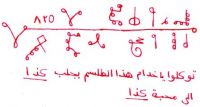 ٨٢٥
توكلوا يا خدام هذا الطلسم بجلب كذا
الى محبة كذا